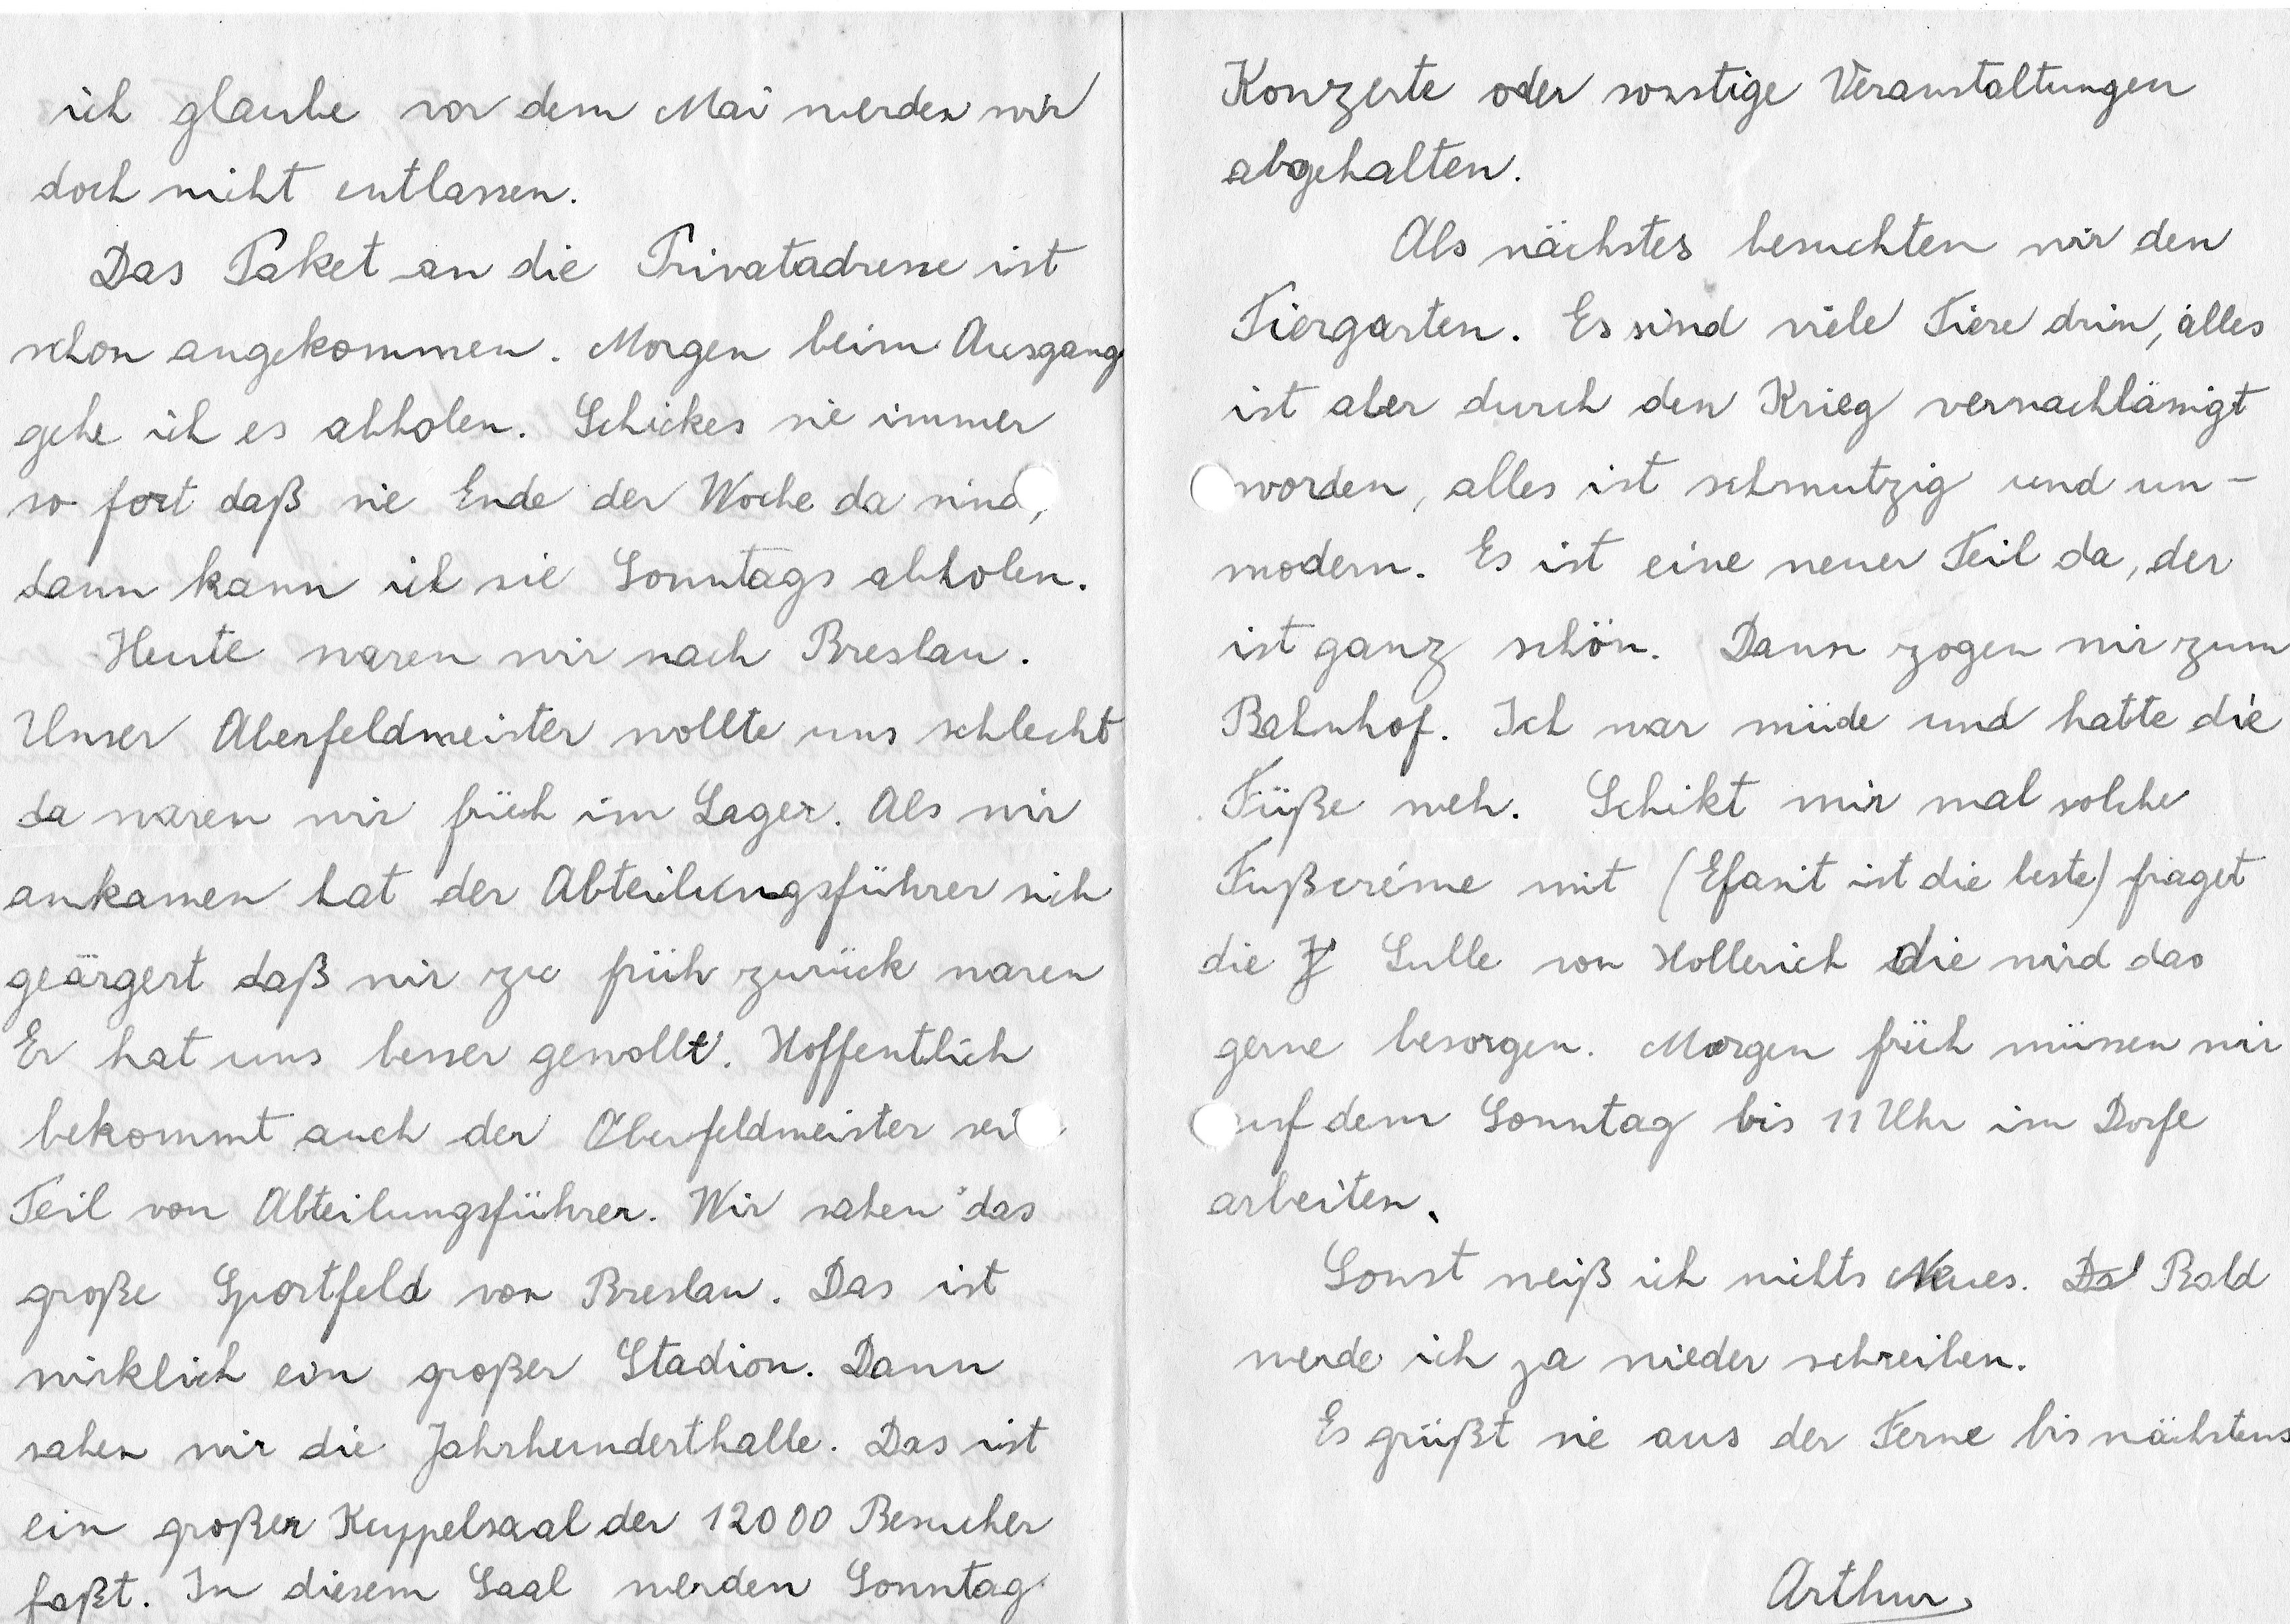 ich glaube vor dem Mai werden wir
doch nicht entlassen.
Das Paket an die Privatadresse ist
schon angekommen. Morgen beim Ausgang
gehe ich es abholen. Schickes sie immer
so fort daß sie Ende der Woche da sind,
dann kann ich sie Sonntags abholen.
Heute waren wir nach Breslau.
Unser Oberfeldmeister wollte uns schlecht
da waren wir früh im Lager. Als wir
ankamen hat der Abteilungsführer sich
geärgert daß wir zu früh zurück waren
Er hat uns besser gewollt. Hoffentlich
bekommt auch der Oberfeldmeister sei
Teil von Abteilungsführer. Wir sahen das
große Sportfeld von Breslau. Das ist
wirklich ein großer Stadion. Dann
sahen wir die Jahrhunderthalle. Das ist
ein großer Kuppelsaal der 12000 Besucher
faßt. In diesem Saal werden Sonntag
Konzerte oder sonstige Veranstaltungen
abgehalten.
Als nächstes besuchten wir den
Tiergarten. Es sind viele Tiere drin, alles
ist aber durch den Krieg vernachläsigt
worden, alles ist schmutzig und un-
modern. Es ist eine neuer Teil da, der
ist ganz schön. Dann zogen wir zum
Bahnhof. Ich war müde und hatte die
Füße weh. Schikt mir mal solche
Fußcréme mit (Efasit ist die beste) fraget
die Lulle von Hollerich die wird das
gerne besorgen. Morgen früh müssen wir
auf dem Sonntag bis 11 Uhr im Dorfe
arbeiten.
Sonst weiß ich nichts Neues. Da Bald
werde ich ja wieder schreiben.
Es grüßt sie aus der Ferne bis nächstens
Arthur